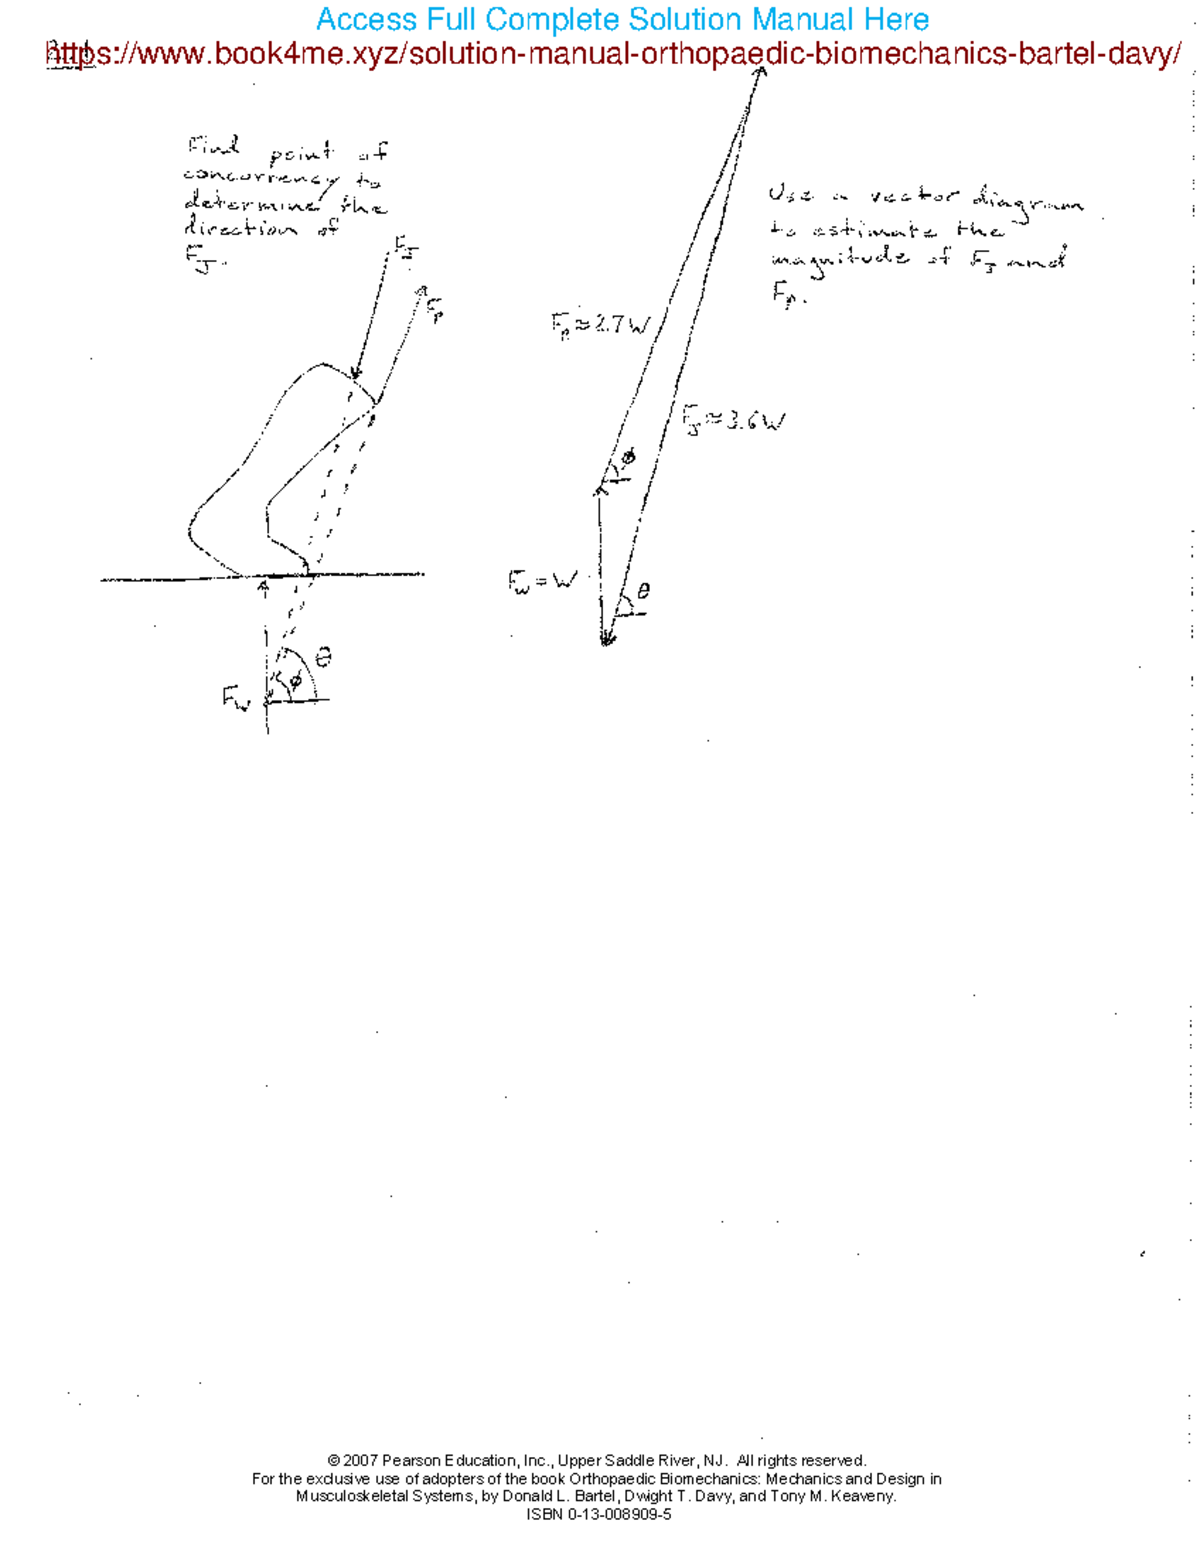 Access Full Complete Solution Manual Here
https://www.book4me.xyz/solution-manual-orthopaedic-biomechanics-bartel-davy/
Find point of
concurrency to
determine the
direction of
F_J.
F_J
F_p
Use a vector diagram
to estimate the
magnitude of F_J and
F_p.
F_p ≈ 2.7W
F_J ≈ 3.6W
ϕ
F_w = W
θ
θ
ϕ
F_w
© 2007 Pearson Education, Inc., Upper Saddle River, NJ. All rights reserved.
For the exclusive use of adopters of the book Orthopaedic Biomechanics: Mechanics and Design in
Musculoskeletal Systems, by Donald L. Bartel, Dwight T. Davy, and Tony M. Keaveny.
ISBN 0-13-008909-5